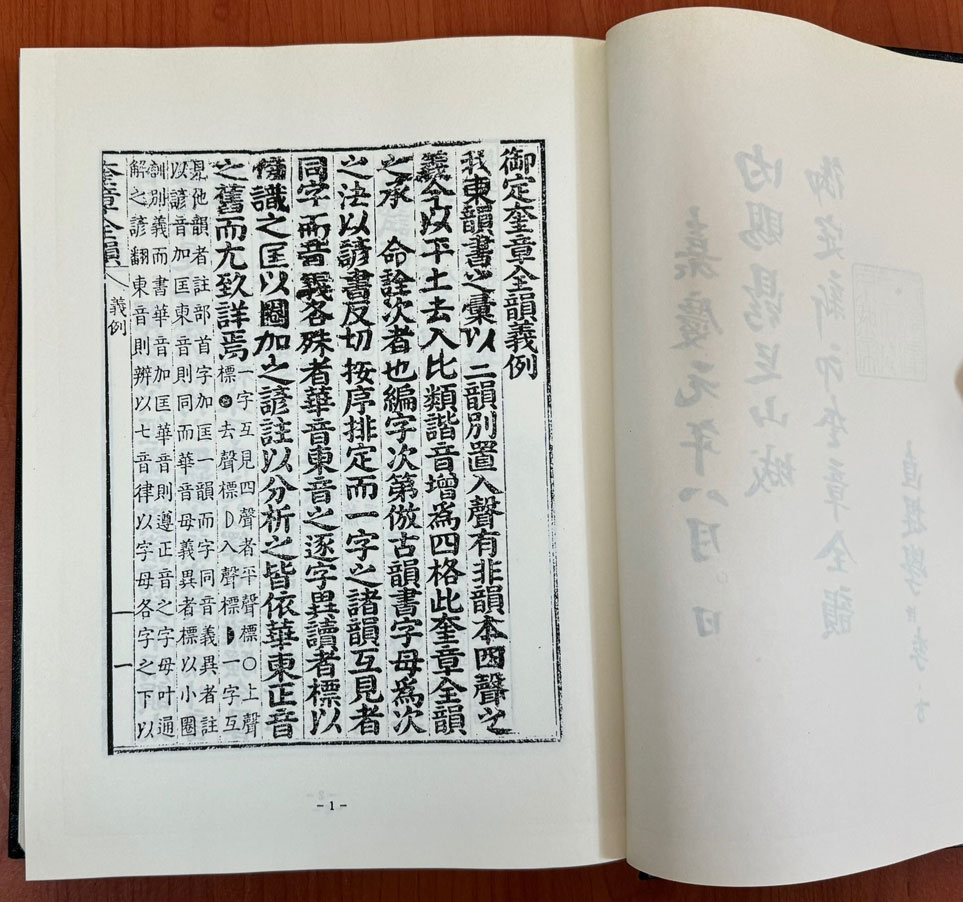 御定奎章全韻義例
我東韻書之彙以三韻別置入聲有非韻本四聲之
義今以平上去入比類諧音增爲四格此奎章全韻
之承 命詮次者也編字次第倣古韻書字母爲次
之法以諺書反切按序排定而一字之諸韻互見者
同字而音義各殊者華音東音之逐字異讀者標以
識之匡以圈加之諺註以分析之皆依華東正音
之舊而尤致詳焉
一字互見四聲者平聲標○上聲
標去聲標D入聲標◗一字互
見他韻者註部首字加匡一韻而字同音義異者註
以諺音加匡東音則同而華音母義異者標以小圈
訓別義而書華音加匡華音則遵正音之字母叶通
解之諺翻東音則辨以七音律以字母各字之下以
奎章全韻
義例
一
- 1 -
嘉慶元年八月 日
內賜 山城
御定新印奎章全韻